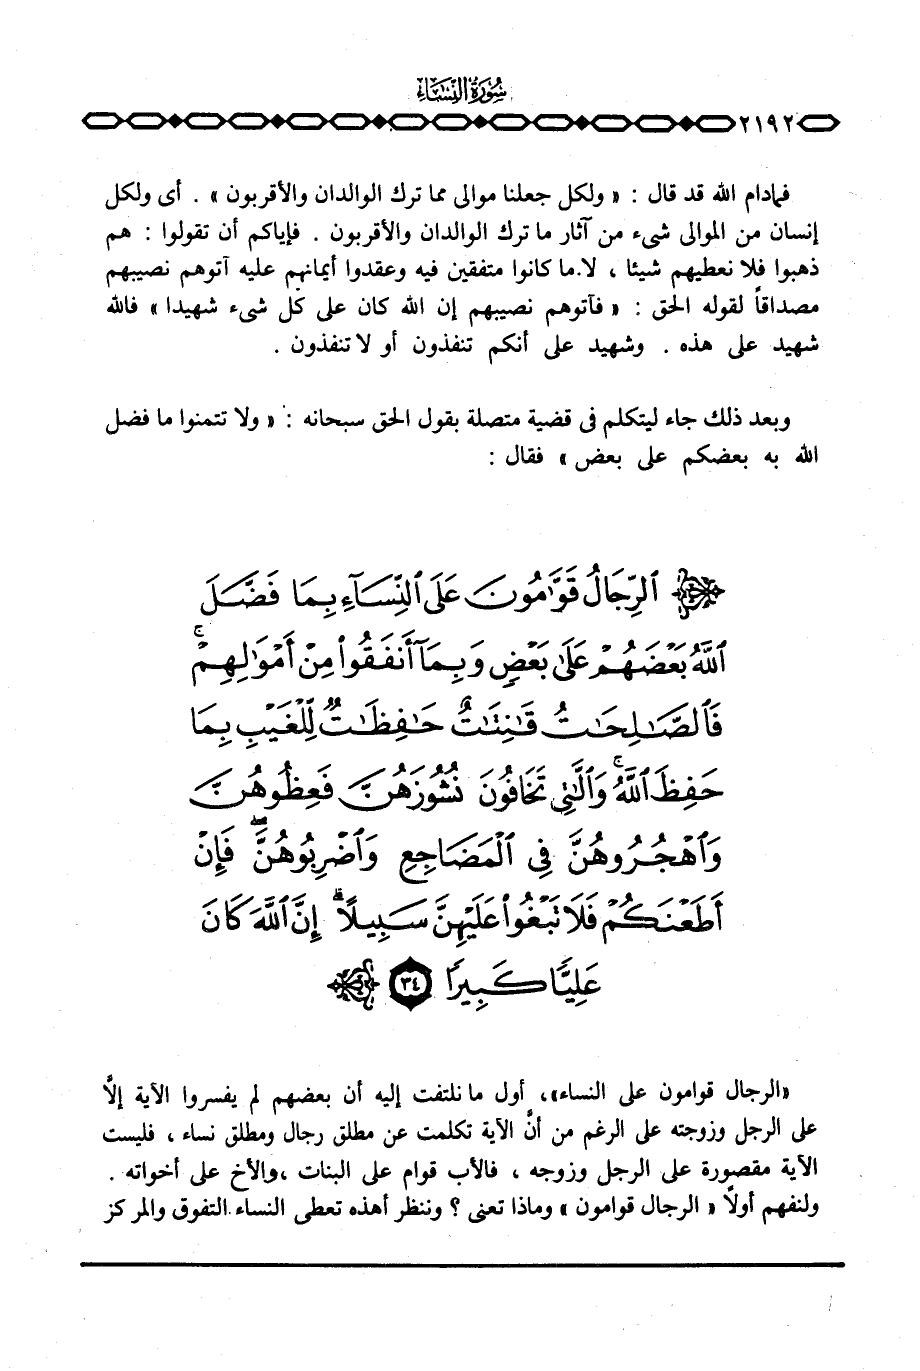 سُورَةُ النِّسَاءِ
٢١٩٢
فمادام الله قد قال : « ولكل جعلنا موالى مما ترك الوالدان والأقربون » . أى ولكل
إنسان من الموالى شىء من آثار ما ترك الوالدان والأقربون . فإياكم أن تقولوا : هم
ذهبوا فلا نعطيهم شيئا ، لا.ما كانوا متفقين فيه وعقدوا أيمانهم عليه آتوهم نصيبهم
مصداقاً لقوله الحق : « فآتوهم نصيبهم إن الله كان على كل شىء شهيدا » فالله
شهيد على هذه . وشهيد على أنكم تنفذون أو لا تنفذون .
وبعد ذلك جاء ليتكلم فى قضية متصلة بقول الحق سبحانه : « ولا تتمنوا ما فضل
الله به بعضكم على بعض » فقال :
ٱلرِّجَالُ قَوَّٰمُونَ عَلَى ٱلنِّسَآءِ بِمَا فَضَّلَ
ٱللَّهُ بَعْضَهُمْ عَلَىٰ بَعْضٍ وَبِمَآ أَنفَقُوا۟ مِنْ أَمْوَٰلِهِمْ ۚ
فَٱلصَّٰلِحَٰتُ قَٰنِتَٰتٌ حَٰفِظَٰتٌ لِّلْغَيْبِ بِمَا
حَفِظَ ٱللَّهُ ۚ وَٱلَّٰتِى تَخَافُونَ نُشُوزَهُنَّ فَعِظُوهُنَّ
وَٱهْجُرُوهُنَّ فِى ٱلْمَضَاجِعِ وَٱضْرِبُوهُنَّ ۖ فَإِنْ
أَطَعْنَكُمْ فَلَا تَبْغُوا۟ عَلَيْهِنَّ سَبِيلًا ۗ إِنَّ ٱللَّهَ كَانَ
عَلِيًّا كَبِيرًا ٣٤
«الرجال قوامون على النساء»، أول ما نلتفت إليه أن بعضهم لم يفسروا الآية إلَّا
على الرجل وزوجته على الرغم من أنَّ الآية تكلمت عن مطلق رجال ومطلق نساء ، فليست
الآية مقصورة على الرجل وزوجه ، فالأب قوام على البنات ،والأخ على أخواته .
ولنفهم أولاً « الرجال قوامون » وماذا تعنى ؟ وننظر أهذه تعطى النساء التفوق والمركز